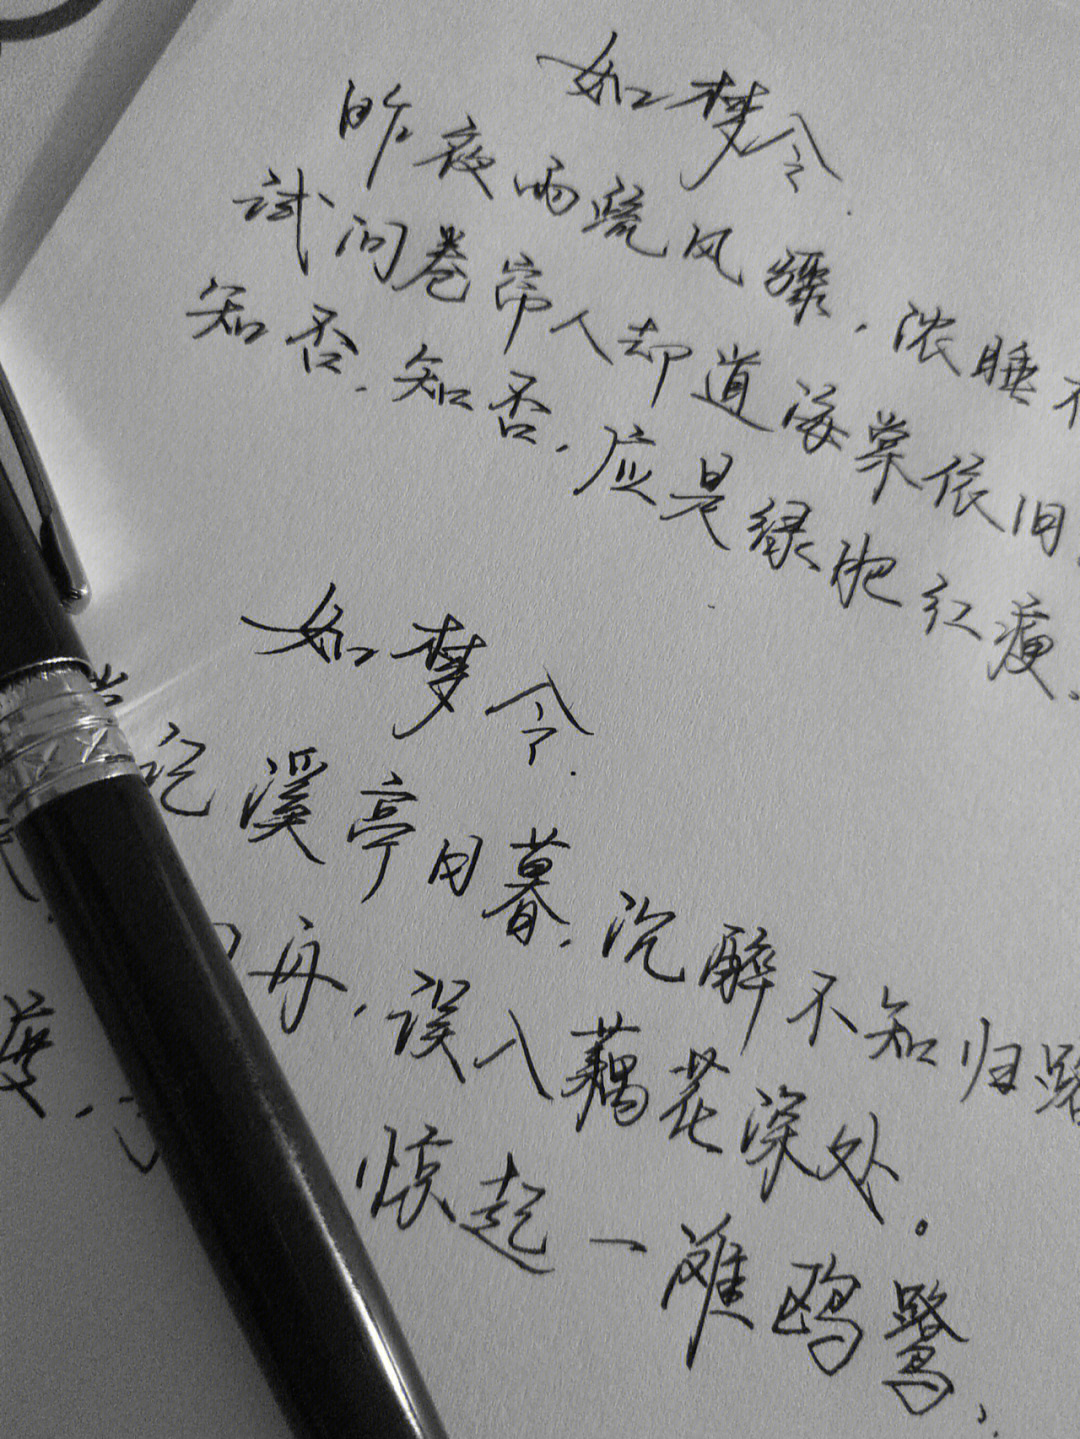 如梦令
昨夜雨疏风骤,浓睡不
试问卷帘人却道海棠依旧
知否,知否,应是绿肥红瘦.
如梦令
记溪亭日暮,沉醉不知归路
舟,误入藕花深处。
度,
惊起一滩鸥鹭,